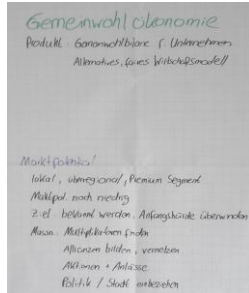 Gemeinwohlökonomie
Produkt: Gemeinwohlbilanz f. Unternehmen
Alternatives, faires Wirtschaftsmodell
Marktpotential
lokal, überregional, Premium Segment
Marktpot. noch niedrig
Ziel: bekannt werden, Anfangshürde überwinden
Massn. Multiplikatoren finden
Allianzen bilden, vernetzen
Aktionen + Anlässe
Politik / Stadt einbeziehen